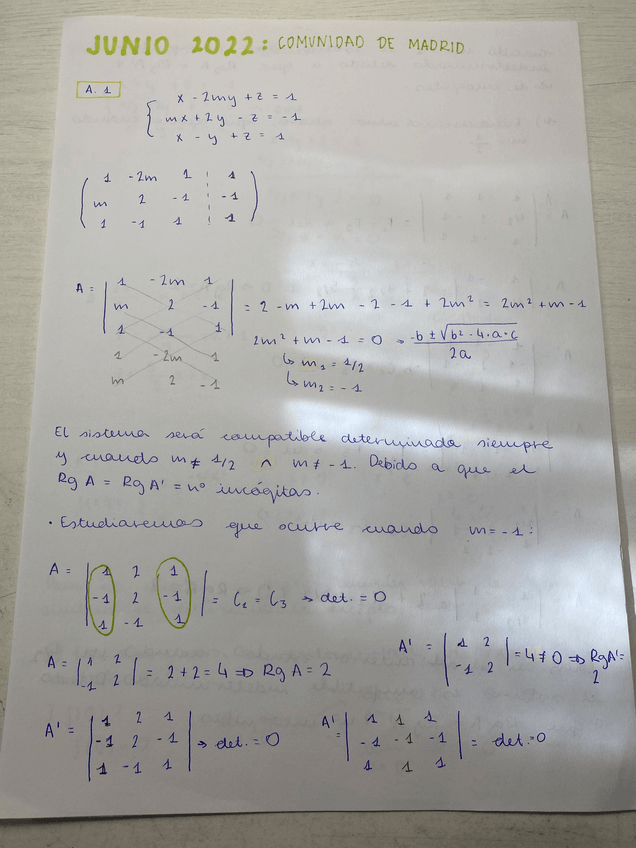 JUNIO 2022: COMUNIDAD DE MADRID
A.1
x - 2my + z = 1
mx + 2y - z = -1
x - y + z = 1
1 -2m 1 1
m 2 -1 -1
1 -1 1 1
A =
1 -2m 1
m 2 -1
1 -1 1
1 -2m 1
m 2 -1
= 2 - m + 2m - 2 - 1 + 2m² = 2m² + m - 1
2m² + m - 1 = 0 → -b ± √b² - 4·a·c / 2a
↳ m₁ = 1/2
↳ m₂ = -1
El sistema será compatible determinada siempre
y cuando m ≠ 1/2 ∧ m ≠ -1. Debido a que el
Rg A = Rg A' = nº incógitas.
· Estudiaremos que ocurre cuando m = -1:
A =
1 2 1
-1 2 -1
1 -1 1
= C₁ = C₃ → det. = 0
A =
1 2
-1 2
= 2 + 2 = 4 ⇒ Rg A = 2
A' =
1 2
-1 2
= 4 ≠ 0 ⇒ Rg A' = 2
A' =
1 2 1
-1 2 -1
1 -1 1
→ det. = 0
A' =
1 1 1
-1 -1 -1
1 1 1
= det. = 0